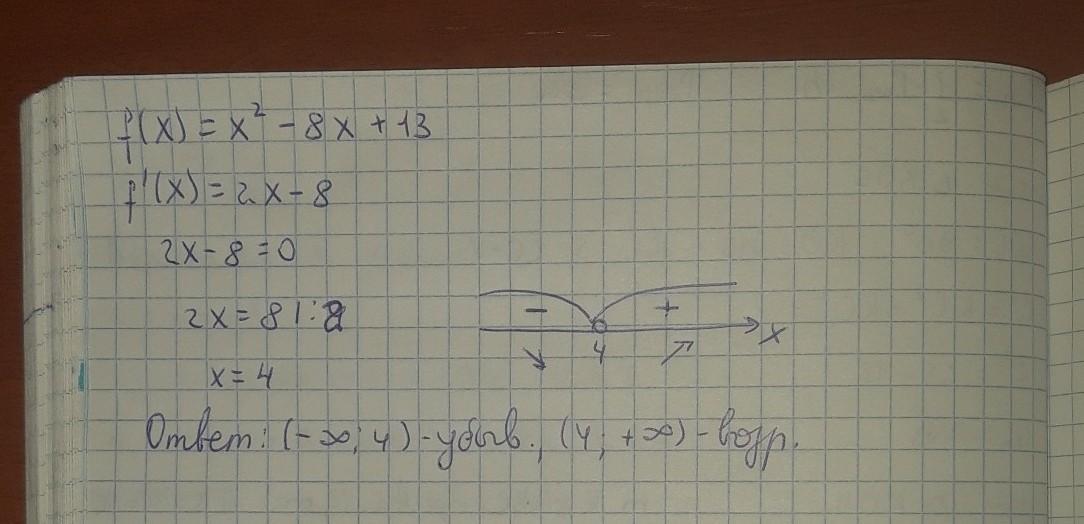 f(x) = x² - 8x + 13
f'(x) = 2x - 8
2x - 8 = 0
2x = 8 | : 2
- +
x
4
x = 4
Ответ: (-∞; 4) - убыв., (4; +∞) - возр.